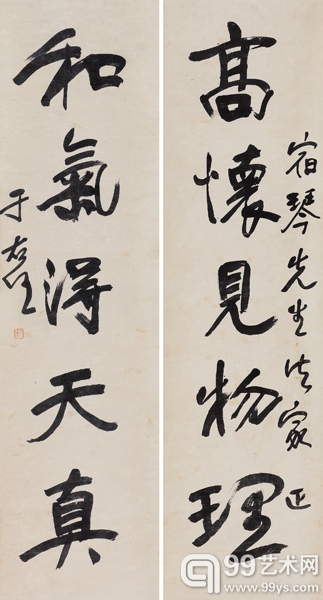 宿琴先生法家正
高懷見物理
和氣得天真
于右任
99艺术网
www.99ys.com